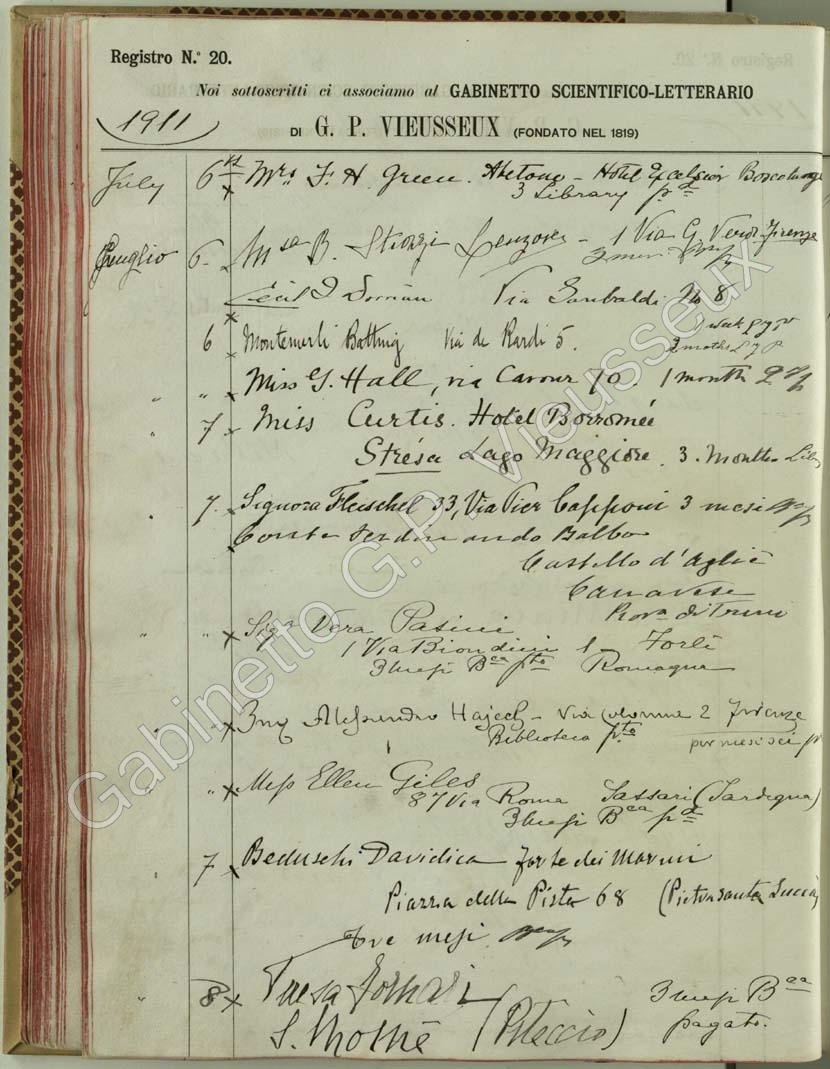 Registro N.° 20.
Noi sottoscritti ci associamo al GABINETTO SCIENTIFICO-LETTERARIO
1911
DI G. P. VIEUSSEUX (FONDATO NEL 1819)
July 6 x Mrs. F. H. Green. Abetone - Hotel Excelsior
3 Library pd
6. B. Strozzi 1 Via G. Verdi Firenze
Via Garibaldi No 8
6 x Montemerli Via de Bardi 5.
" " x Miss G. Hall, via Cavour 70. 1 month
" 7 x Miss Curtis. Hotel Borromée
Strésa Lago Maggiore. 3. Months
7. x Signora Fleischel 33, Via Pier Capponi 3 mesi
x Conte Ferdinando Balbo
Castello d'Agliè
Canavese
" " x Sigra Vera Pasini
1 Via Biondini 1 Forlì
3 mesi Bca pto Romagna
" x Ing Alessandro Hajech - Via Colonna 2 Firenze
Biblioteca pto per mesi sei
" " x Miss Ellen Giles
87 Via Roma Sassari (Sardegna)
3 mesi Bca pd
7 x Beduschi Davidica Forte dei Marmi
Piazza della Pista 68 (Pietrasanta Lucca)
Tre mesi
" 8 x Teresa 3 mesi Bca
S. Mommè (Piteccio) pagato.
Gabinetto G.P. Vieusseux